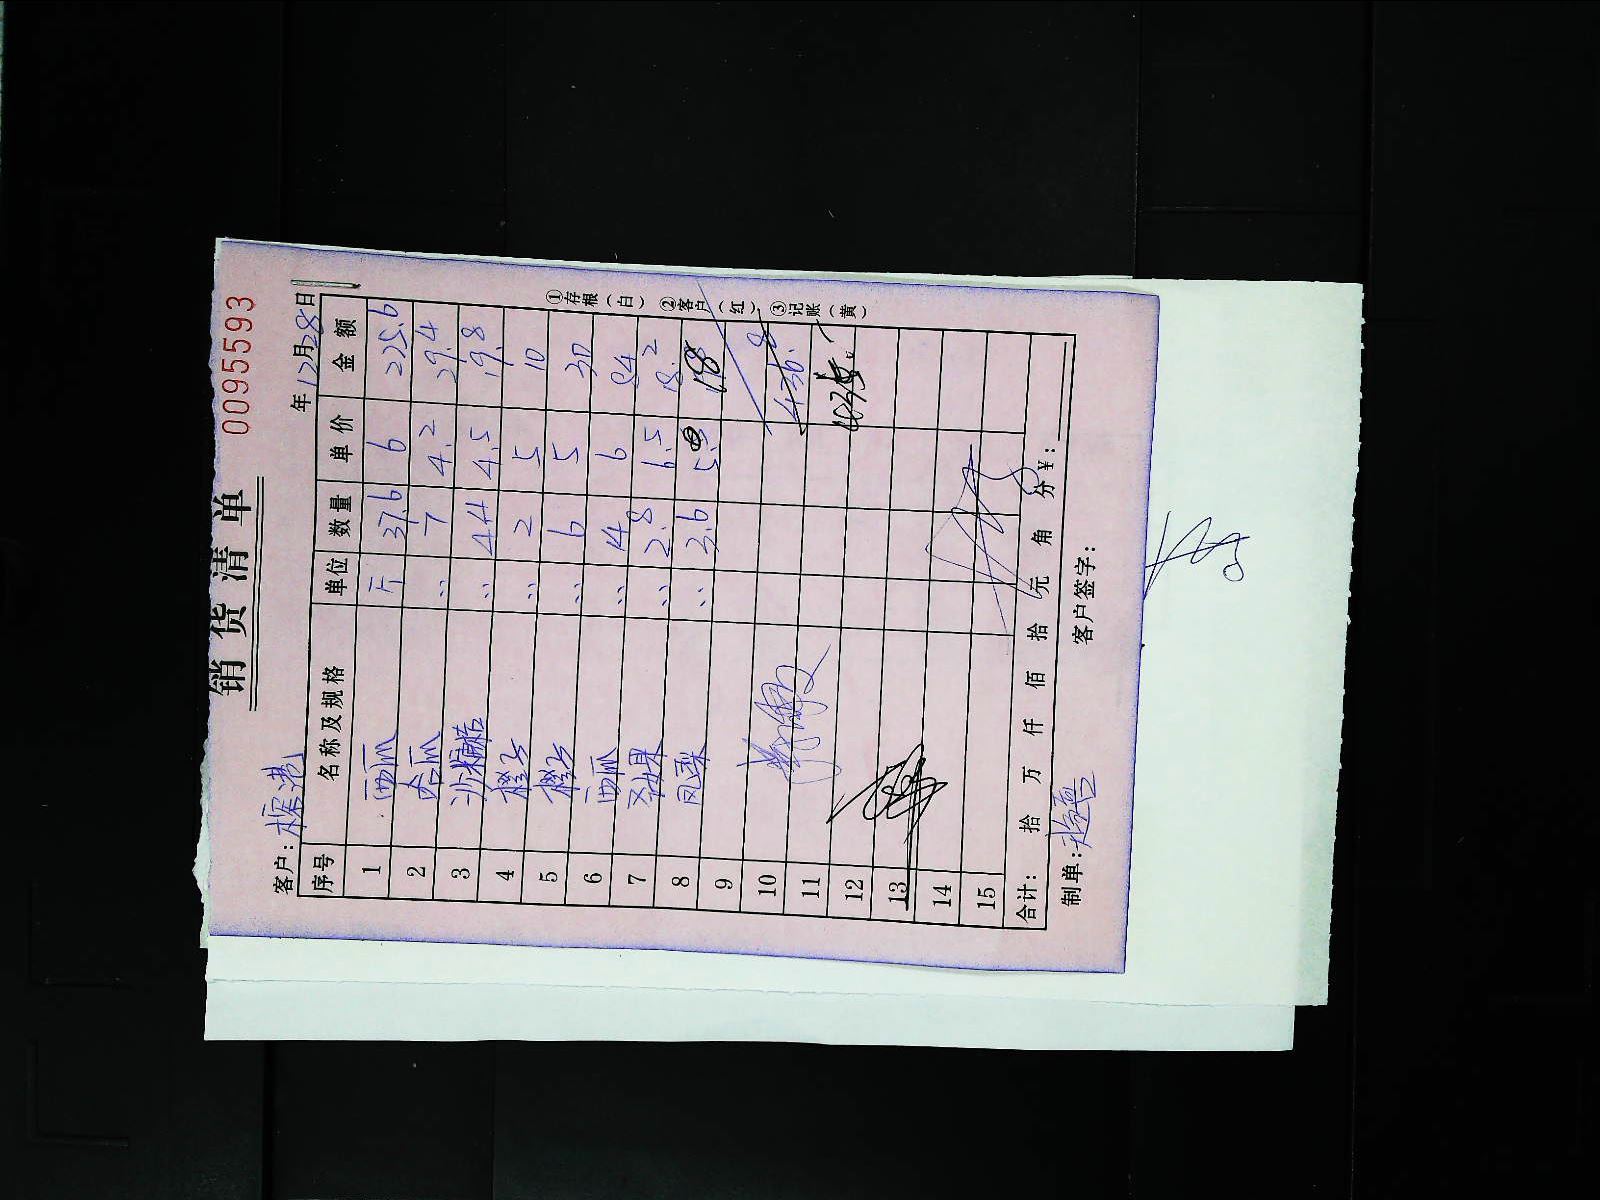 销货清单
0095593
客户:
年12月28日
序号 名称及规格 单位 数量 单价 金额
1 西瓜 斤 37.6 6 225.6
2 哈瓜 〃 7 4.2 29.4
3 沙糖桔 〃 4.4 4.5 19.8
4 橙子 〃 2 5 10
5 橙子 〃 6 5 30
6 西瓜 〃 14 6 84
7 〃 2.8 6.5 18.2
8 凤梨 〃 3.6 5 18
9
10 436.8
11
12
13
14
15
合计: 拾 万 仟 佰 拾 元 角 分 ¥:
制单: 客户签字:
①存根(白) ②客户(红) ③记账(黄)